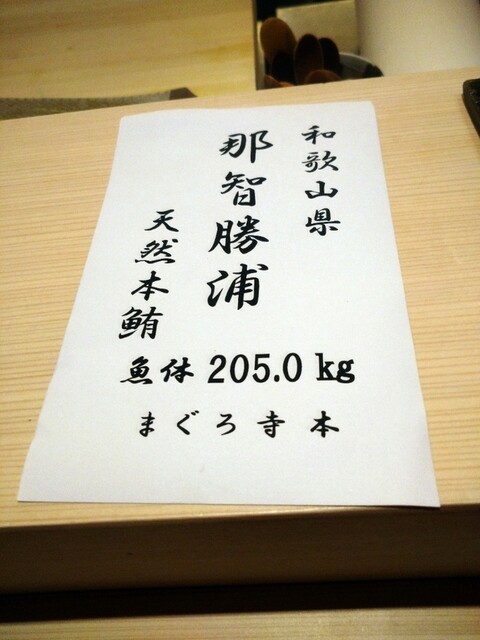 和歌山県
那智勝浦
天然本鮪
魚体 205.0 kg
まぐろ寺本